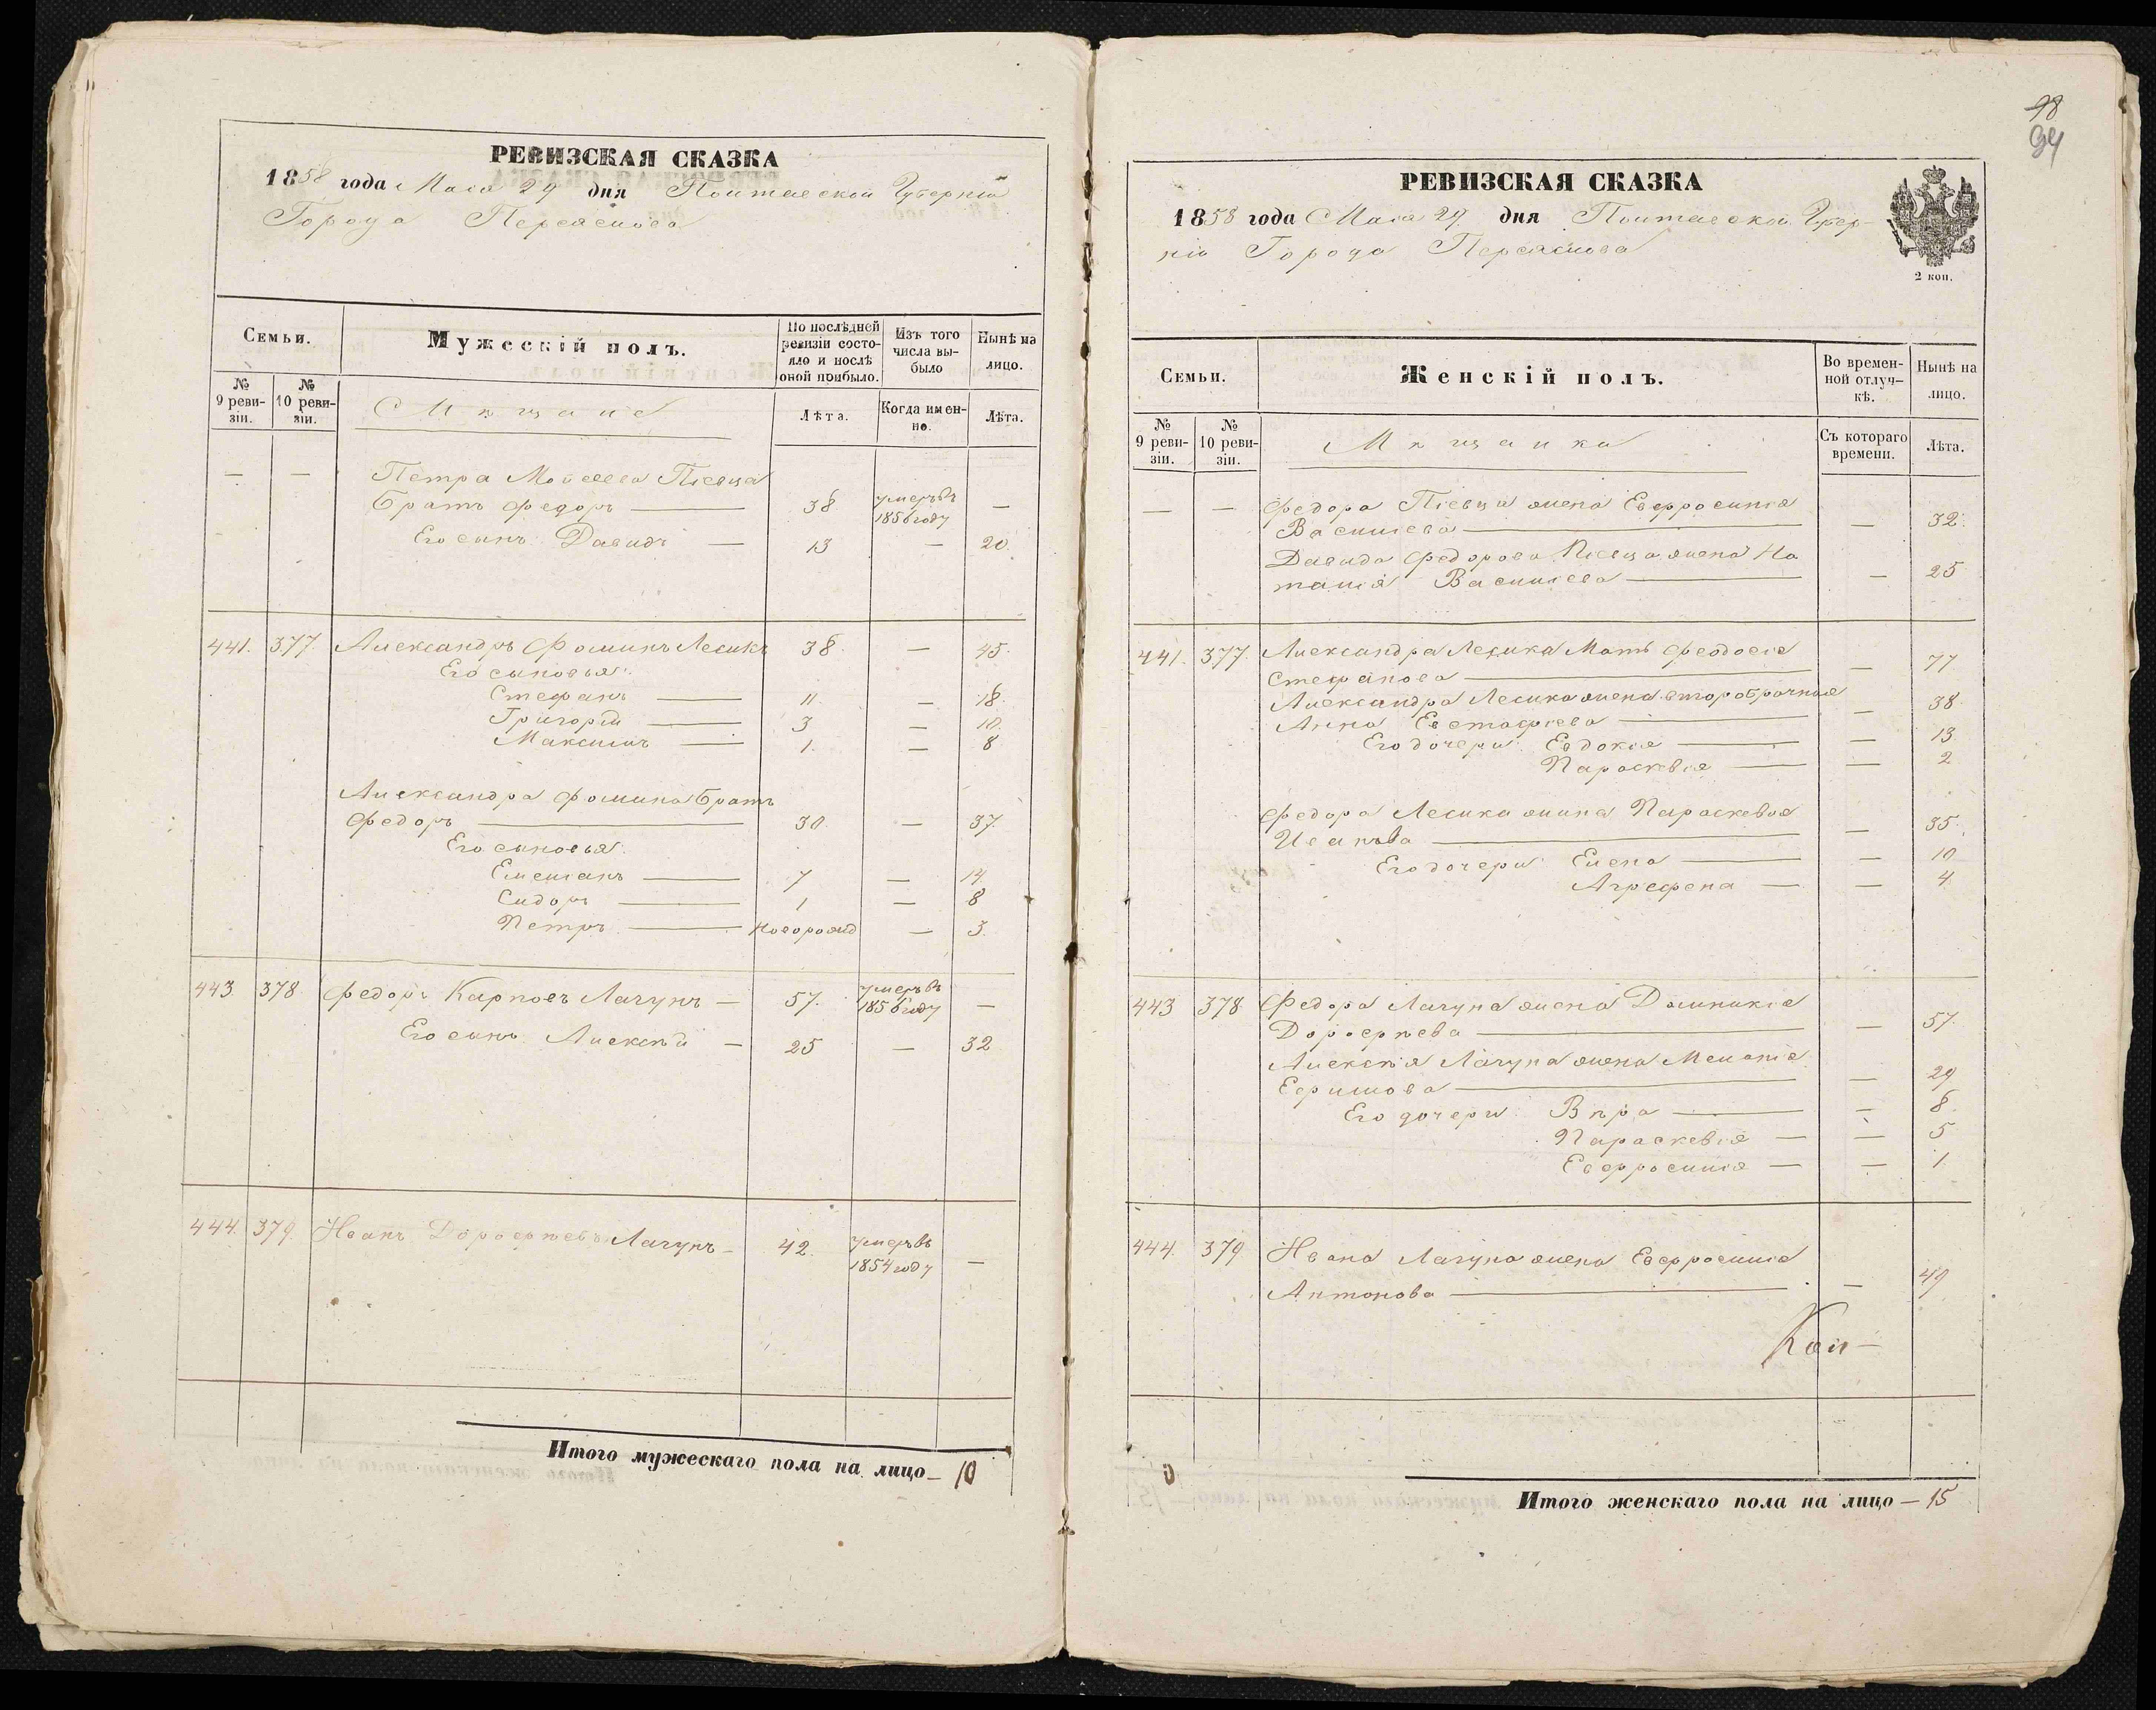 РЕВИЗСКАЯ СКАЗКА
1858 года Мая 29 дня Полтавской Губерніи
Города Переяслова
Семьи.
Мужескій полъ.
По послѣдней ревизіи состояло и послѣ оной прибыло.
Изъ того числа выбыло
Нынѣ на лицо.
№ 9 ревизіи.
№ 10 ревизіи.
Мѣщане
Лѣта.
Когда именно.
Лѣта.
— — Петра Мойсеева Пѣвца
Братъ Федоръ — 38 умеръ въ 1856 году —
Его сынъ Давидъ — 13 — 20.
441. 377. Александръ Фоминъ Лесикъ 38. — 45.
Его сыновья:
Стефанъ — 11. — 18.
Григорій — 3 — 10.
Максимъ — 1. — 8
Александра Фомина братъ
Федоръ — 30. — 37.
Его сыновья:
Емельянъ — 7 — 14.
Сидоръ — 1 — 8
Петръ — новорожд — 3.
443. 378. Федоръ Карповъ Лагунъ — 57. умеръ въ 1856 году —
Его сынъ Алексѣй — 25 — 32
444. 379. Иванъ Дорофѣевъ Лагунъ — 42. умеръ въ 1854 году —
Итого мужескаго пола на лицо — 10
98
94
РЕВИЗСКАЯ СКАЗКА
1858 года Мая 29 дня Полтавской Губер-
ніи Города Переяслова
2 коп.
Семьи.
Женскій полъ.
Во временной отлучкѣ.
Нынѣ на лицо.
№ 9 ревизіи.
№ 10 ревизіи.
Мѣщанки
Съ котораго времени.
Лѣта.
— — Федора Пѣвца жена Евфросинія
Васильева — — 32.
Давида Федорова Пѣвца жена На
талія Васильева — — 25
441. 377. Александра Лесика Мать Феодосія
Стефанова — — 77
Александра Лесика жена второбрачная
Анна Евстафіева — — 38.
Его дочери: Евдокія — — 13.
Параскевія — — 2
Федора Лесика жина Параскевія
Исакѣва — — 35.
Его дочери: Елена — — 10
Агрефена — — 4.
443 378. Федора Лагуна жена Домникія
Дорофѣева — — 57.
Алексѣя Лагуна жена Меланія
Ефимова — — 29
Его дочери: Вѣра — — 8.
Параскевія — — 5
Евфросинія — — 1.
444. 379 Ивана Лагуна жена Евфросинія
Антонова — — 49
Итого женскаго пола на лицо — 15